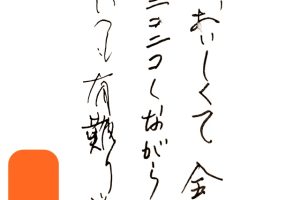 おいしくて 全
ニコニコしながら
いつも有難り